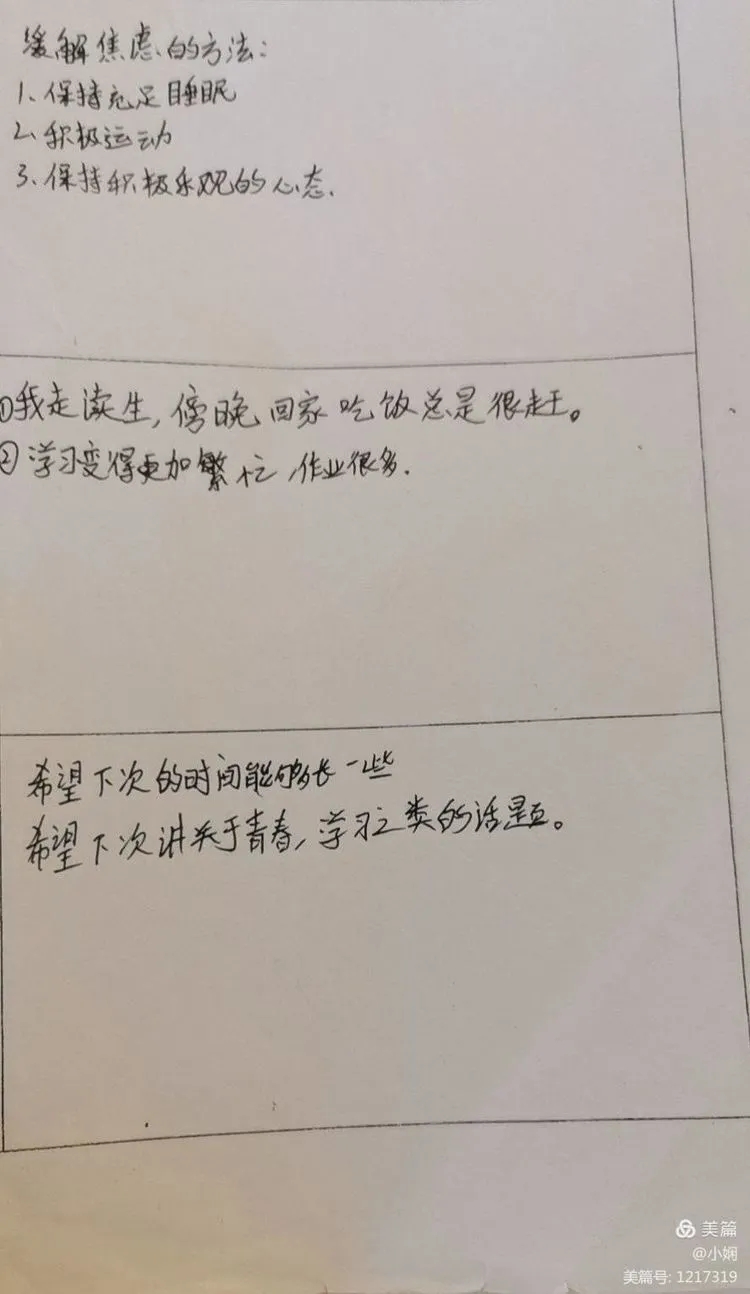 缓解焦虑的方法:
1、保持充足睡眠
2、积极运动
3、保持积极乐观的心态.
①我走读生,傍晚回家吃饭总是很赶。
②学习变得更加繁忙,作业很多.
希望下次的时间能够长一些
希望下次讲关于青春,学习之类的话题。
美篇
@小娴
美篇号: 1217319